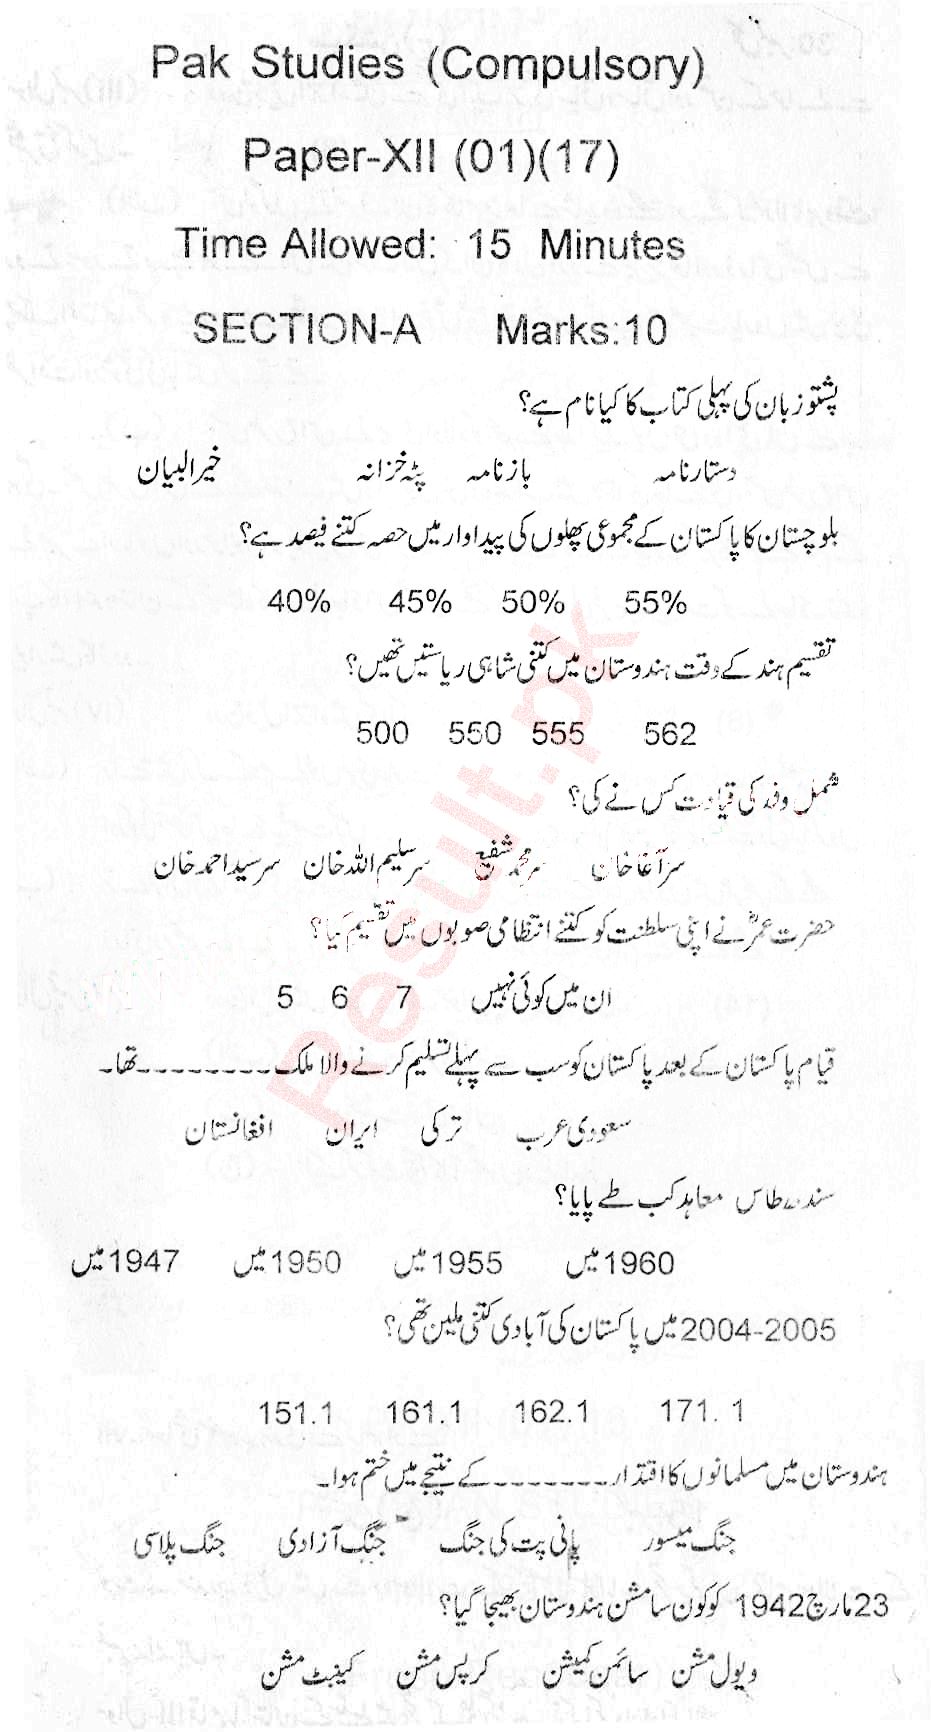 Pak Studies (Compulsory)
Paper-XII (01)(17)
Time Allowed: 15 Minutes
SECTION-A Marks:10
پشتو زبان کی پہلی کتاب کا کیا نام ہے؟
دستارنامہ بازنامہ پٹہ خزانہ خیرالبیان
بلوچستان کا پاکستان کے مجموعی پھلوں کی پیداوار میں حصہ کتنے فیصد ہے؟
40% 45% 50% 55%
تقسیم ہند کے وقت ہندوستان میں کتنی شاہی ریاستیں تھیں؟
500 550 555 562
شملہ وفد کی قیادت کس نے کی؟
سر آغا خان سر محمد شفیع سر سلیم اللہ خان سر سید احمد خان
حضرت عمرؓ نے اپنی سلطنت کو کتنے انتظامی صوبوں میں تقسیم کیا؟
ان میں کوئی نہیں 7 6 5
قیام پاکستان کے بعد پاکستان کو سب سے پہلے تسلیم کرنے والا ملک --------- تھا۔
سعودی عرب ترکی ایران افغانستان
سندھ طاس معاہد کب طے پایا؟
1960 میں 1955 میں 1950 میں 1947 میں
2004-2005 میں پاکستان کی آبادی کتنی ملین تھی؟
151.1 161.1 162.1 171. 1
ہندوستان میں مسلمانوں کا اقتدار -------- کے نتیجے میں ختم ہوا۔
جنگ میسور پانی پت کی جنگ جنگ آزادی جنگ پلاسی
23 مارچ 1942 کو کون سا مشن ہندوستان بھیجا گیا؟
ویول مشن سائمن کمیشن کرپس مشن کیبنٹ مشن
Result.pk